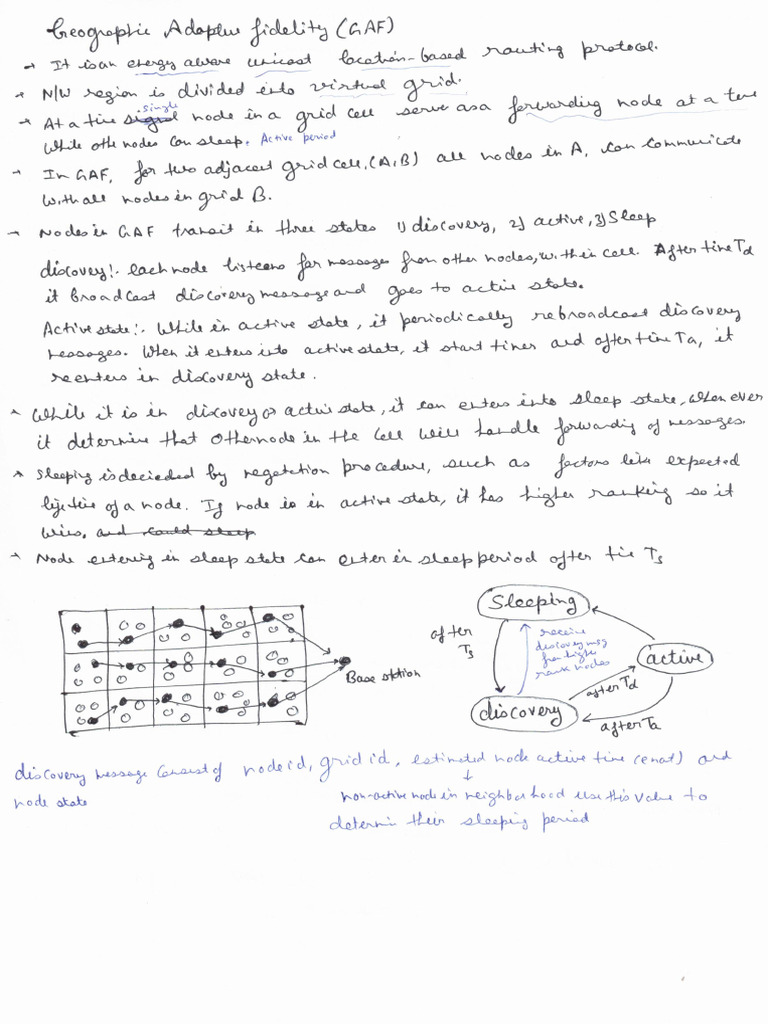 Geographic Adaptive fidelity (GAF)
→ It is an energy aware unicast location-based routing protocol.
→ N/W region is divided into virtual grid.
→ At a time single node in a grid cell serve as a forwarding node at a time
while othe nodes can sleep. Active period
→ In GAF, for two adjacent grid cell, (A, B) all nodes in A, can communicate
with all nodes in grid B.
→ Nodes in GAF transit in three states 1) discovery, 2) active, 3) Sleep
discovery!. each node listens for messages from other nodes, within cell. After time Td
it Broadcast discovery message and goes to active state.
Active state!. While in active state, it periodically rebroadcast discovery
messages. When it enters into active state, it start timer and after time Ta, it
reenters in discovery state.
→ While it is in discovey or active state, it can enters into sleep state, when ever
it determine that other node in the cell will handle forwarding of messages.
→ Sleeping is decieded by negotation procedure, such as factors like expected
lifetime of a node. If node is in active state, it has higher ranking so it
wins. and could sleep
→ Node entering in sleep state can enter in sleep period after tie Ts
Sleeping
after
Ts
receive
discovery msg
from high
rank nodes
active
Base station
after Td
discovery
after Ta
discovery message consist of node id, grid id, estimated node active time (enat) and
node state
non-active node in neighborhood use this value to
determin their sleeping period